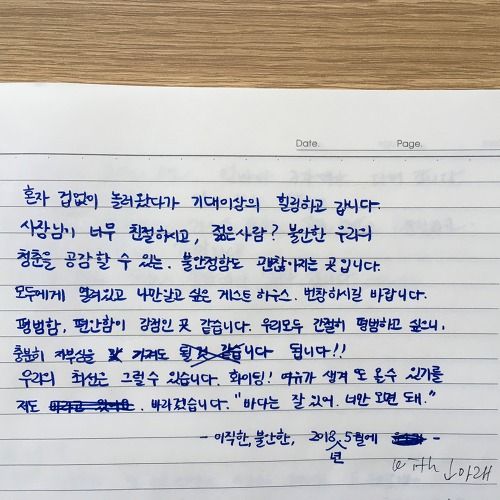 Date. Page.
혼자 겁없이 놀러왔다가 기대이상의 힐링하고 갑니다.
사장님이 너무 친절하시고, 젊은사람? 불안한 우리의
청춘을 공감할 수 있는. 불안정함도 괜찮아지는 곳입니다.
모두에게 열려있고 나만알고 싶은 게스트하우스. 번창하시길 바랍니다.
평범함, 편안함이 강점인 곳 같습니다. 우리모두 간절히 평범하고 싶으니,
충분히 자부심을 가져도 될것 같습니다 됩니다!!
우리의 최선은 그럴 수 있습니다. 화이팅! 여유가 생겨 또 올수 있기를
저도 바라겠습니다. "바다는 잘 있어. 너만 오면 돼."
- 이직한, 불안한, 2018년 5월에 -
with ↓아래